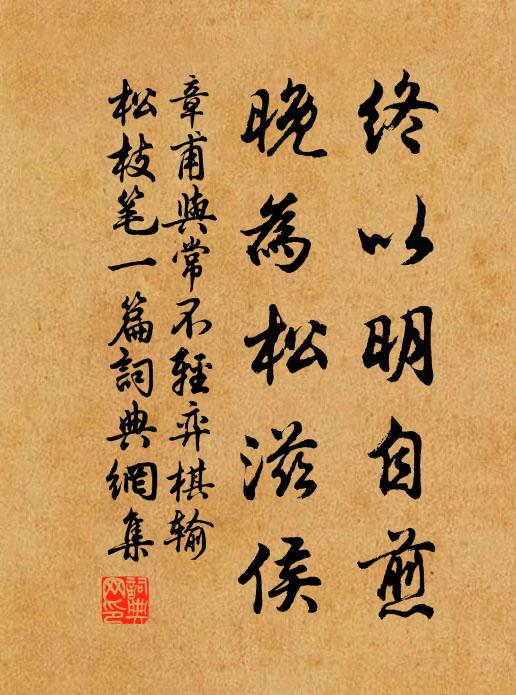 終以明自煎
晚為松滋侯
章甫與常不輕弈棋输
松枝笔一篇詞典網集
詞典网印